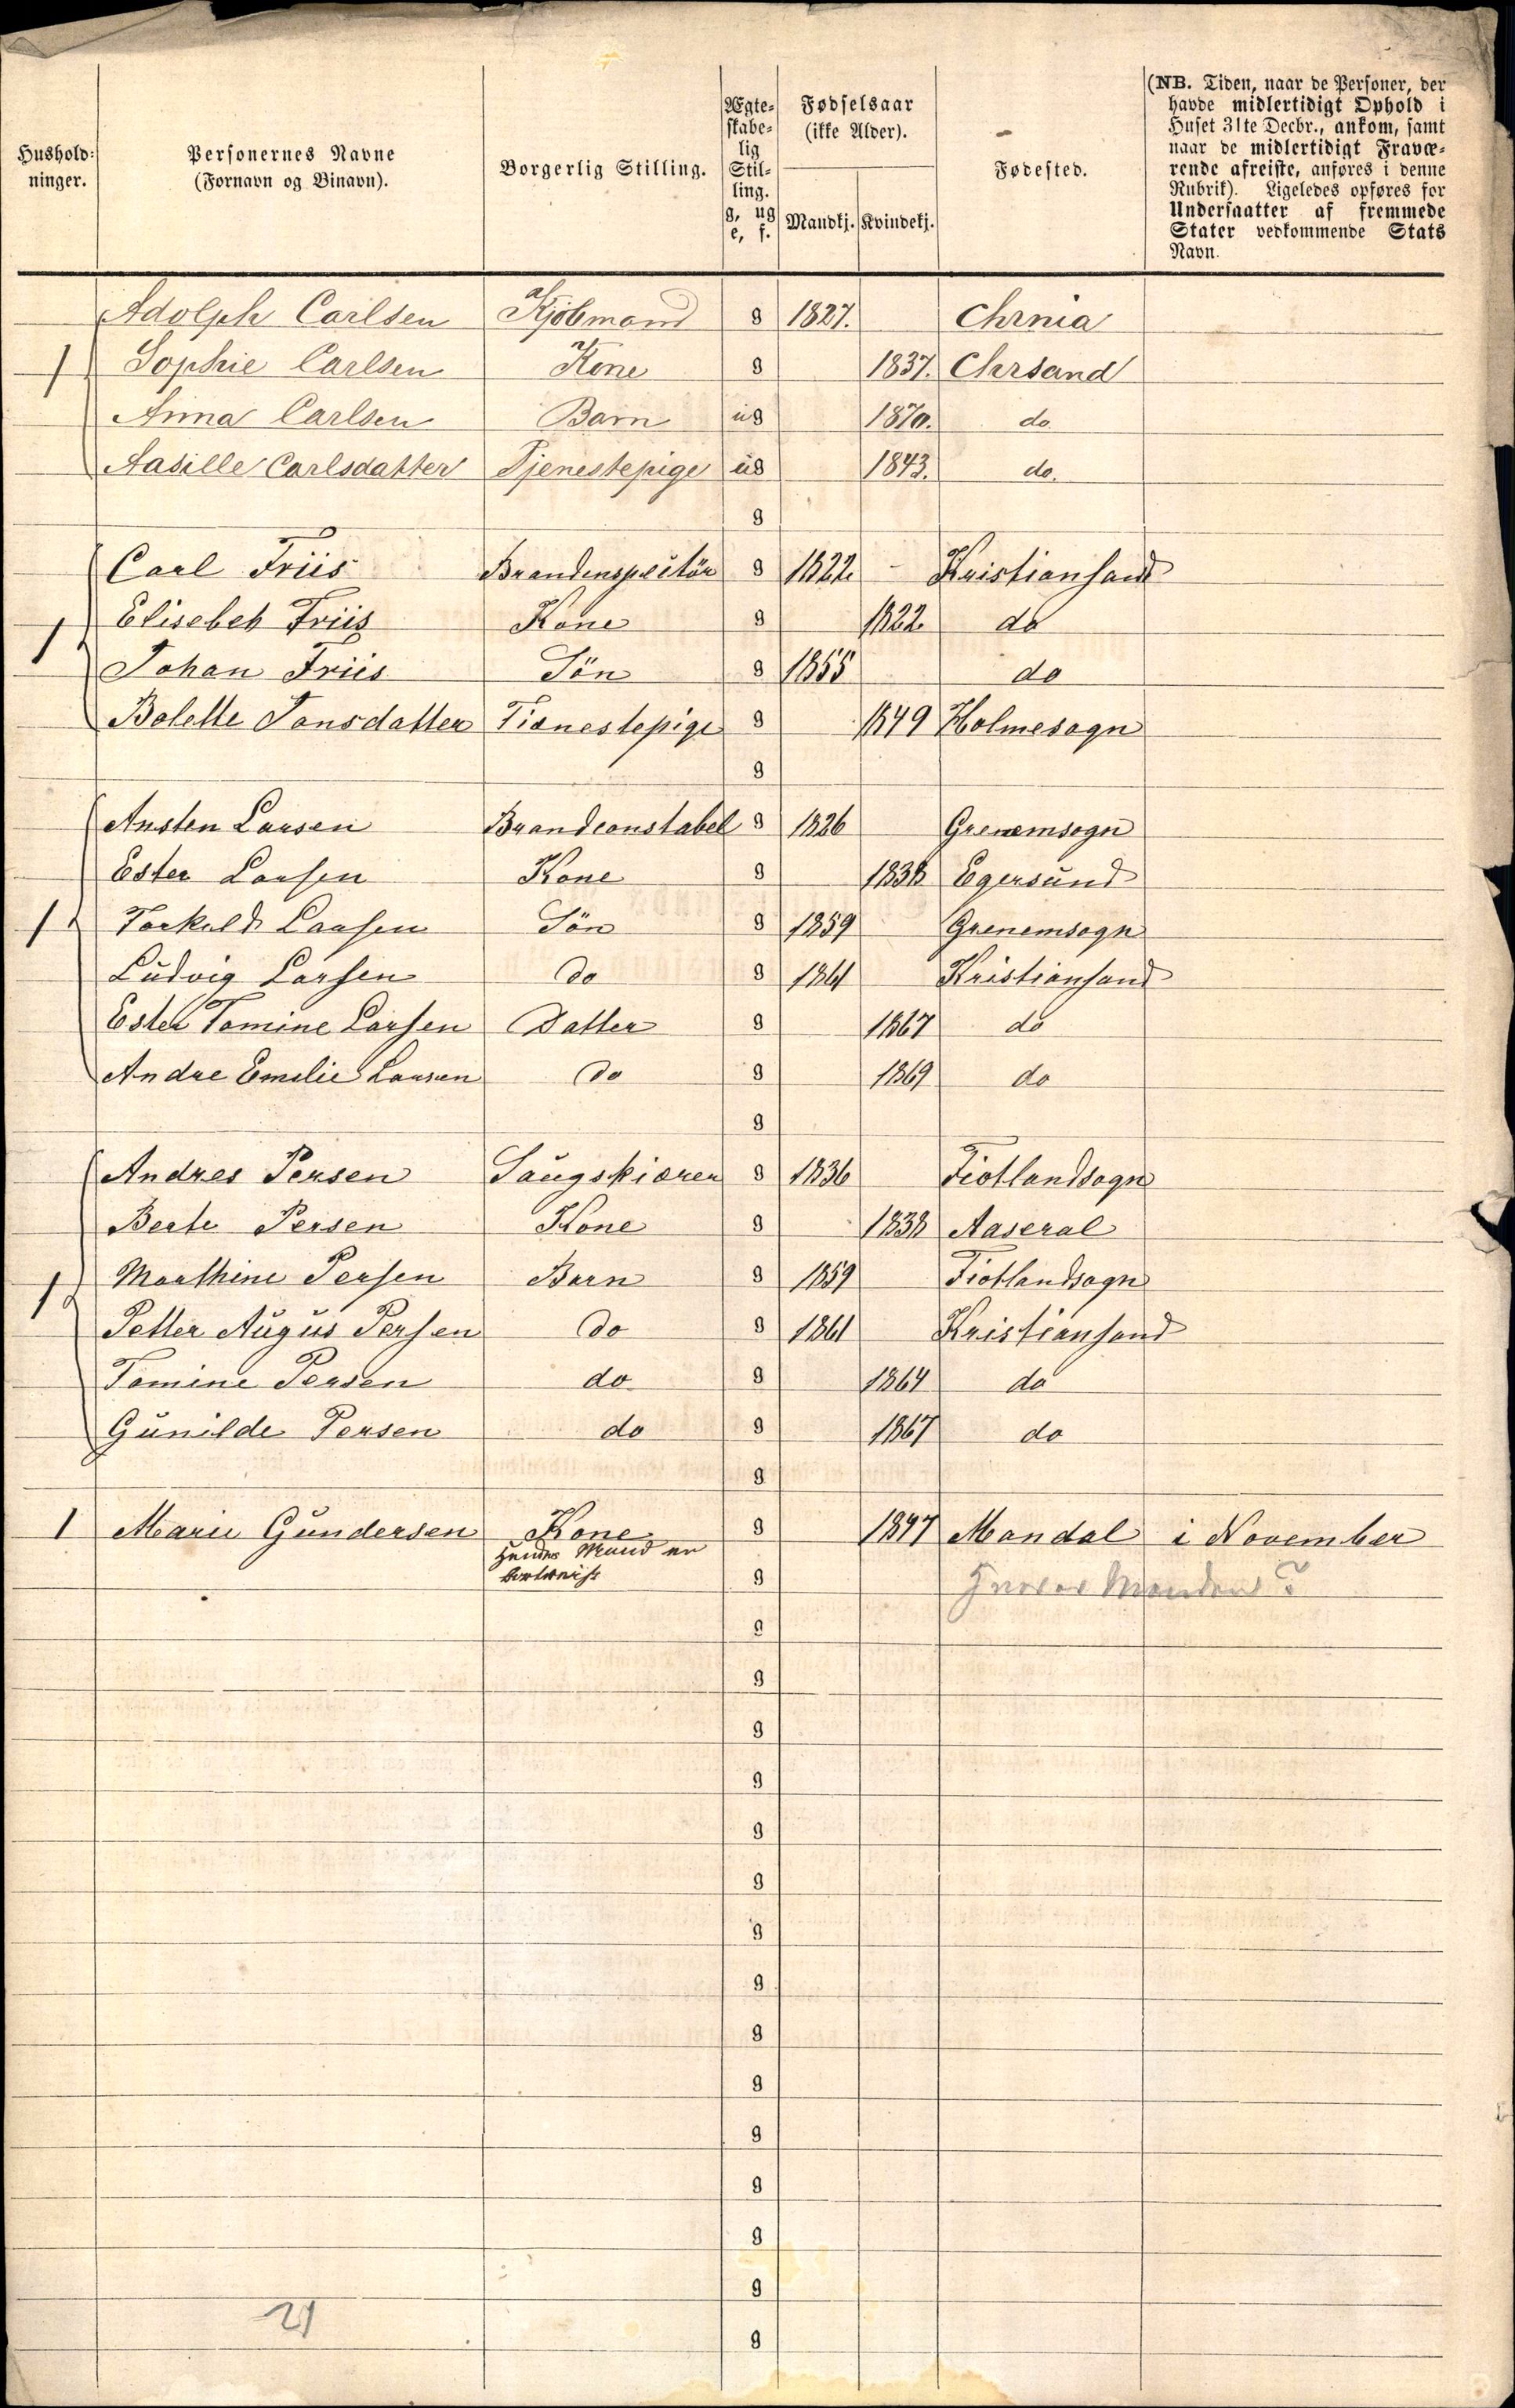 Hushold-
ninger.
Personernes Navne
(Fornavn og Binavn).
Borgerlig Stilling.
Ægte-
skabe-
lig
Stil-
ling.
g, ug
e, f.
Fødselsaar
(ikke Alder).
Mandkj. Kvindekj.
Fødested.
(NB. Tiden, naar de Personer, der
havde midlertidigt Ophold i
Huset 31te Decbr., ankom, samt
naar de midlertidigt Fravæ-
rende afreiste, anføres i denne
Rubrik). Ligeledes opføres for
Undersaatter af fremmede
Stater vedkommende Stats
Navn.
Adolph Carlsen Kjöbmand g 1827. Chrnia
1 Sophie Carlsen Kone g 1837. Chrsand
Anna Carlsen Barn ug 1870. do.
Aasille Carlsdatter Tjenestepige ug 1843. do.
g
Carl Friis Brandenspektör g 1822 Kristiansand
Elisebet Friis Kone g 1822 do
1 Johan Friis Sön g 1855 do
Bolette Tonsdatter Tienestepige g 1849 Holmesogn
g
Ansten Larsen Brandconstabel g 1826 Grenemsogn
Ester Larsen Kone g 1838 Egersund
1 Torkeld Larsen Sön g 1859 Grenemsogn
Ludvig Larsen do g 1861 Kristiansand
Ester Tomine Larsen Datter g 1867 do
Andre Emelie Larsen do g 1869 do
g
Andres Persen Saugskiærer g 1836 Fiotlandsogn
Berte Persen Kone g 1838 Aaseral
1 Marthine Persen Barn g 1859 Fiotlandsogn
Petter Augus Persen do g 1861 Kristiansand
Tomine Persen do g 1864 do
Gunilde Persen do g 1867 do
g
1 Marie Gundersen Kone g 1847 Mandal i November
Hendes Mand er
bortreist g Hvor er Manden?
g
g
g
g
g
g
g
g
g
g
g
g
g
g
21
g